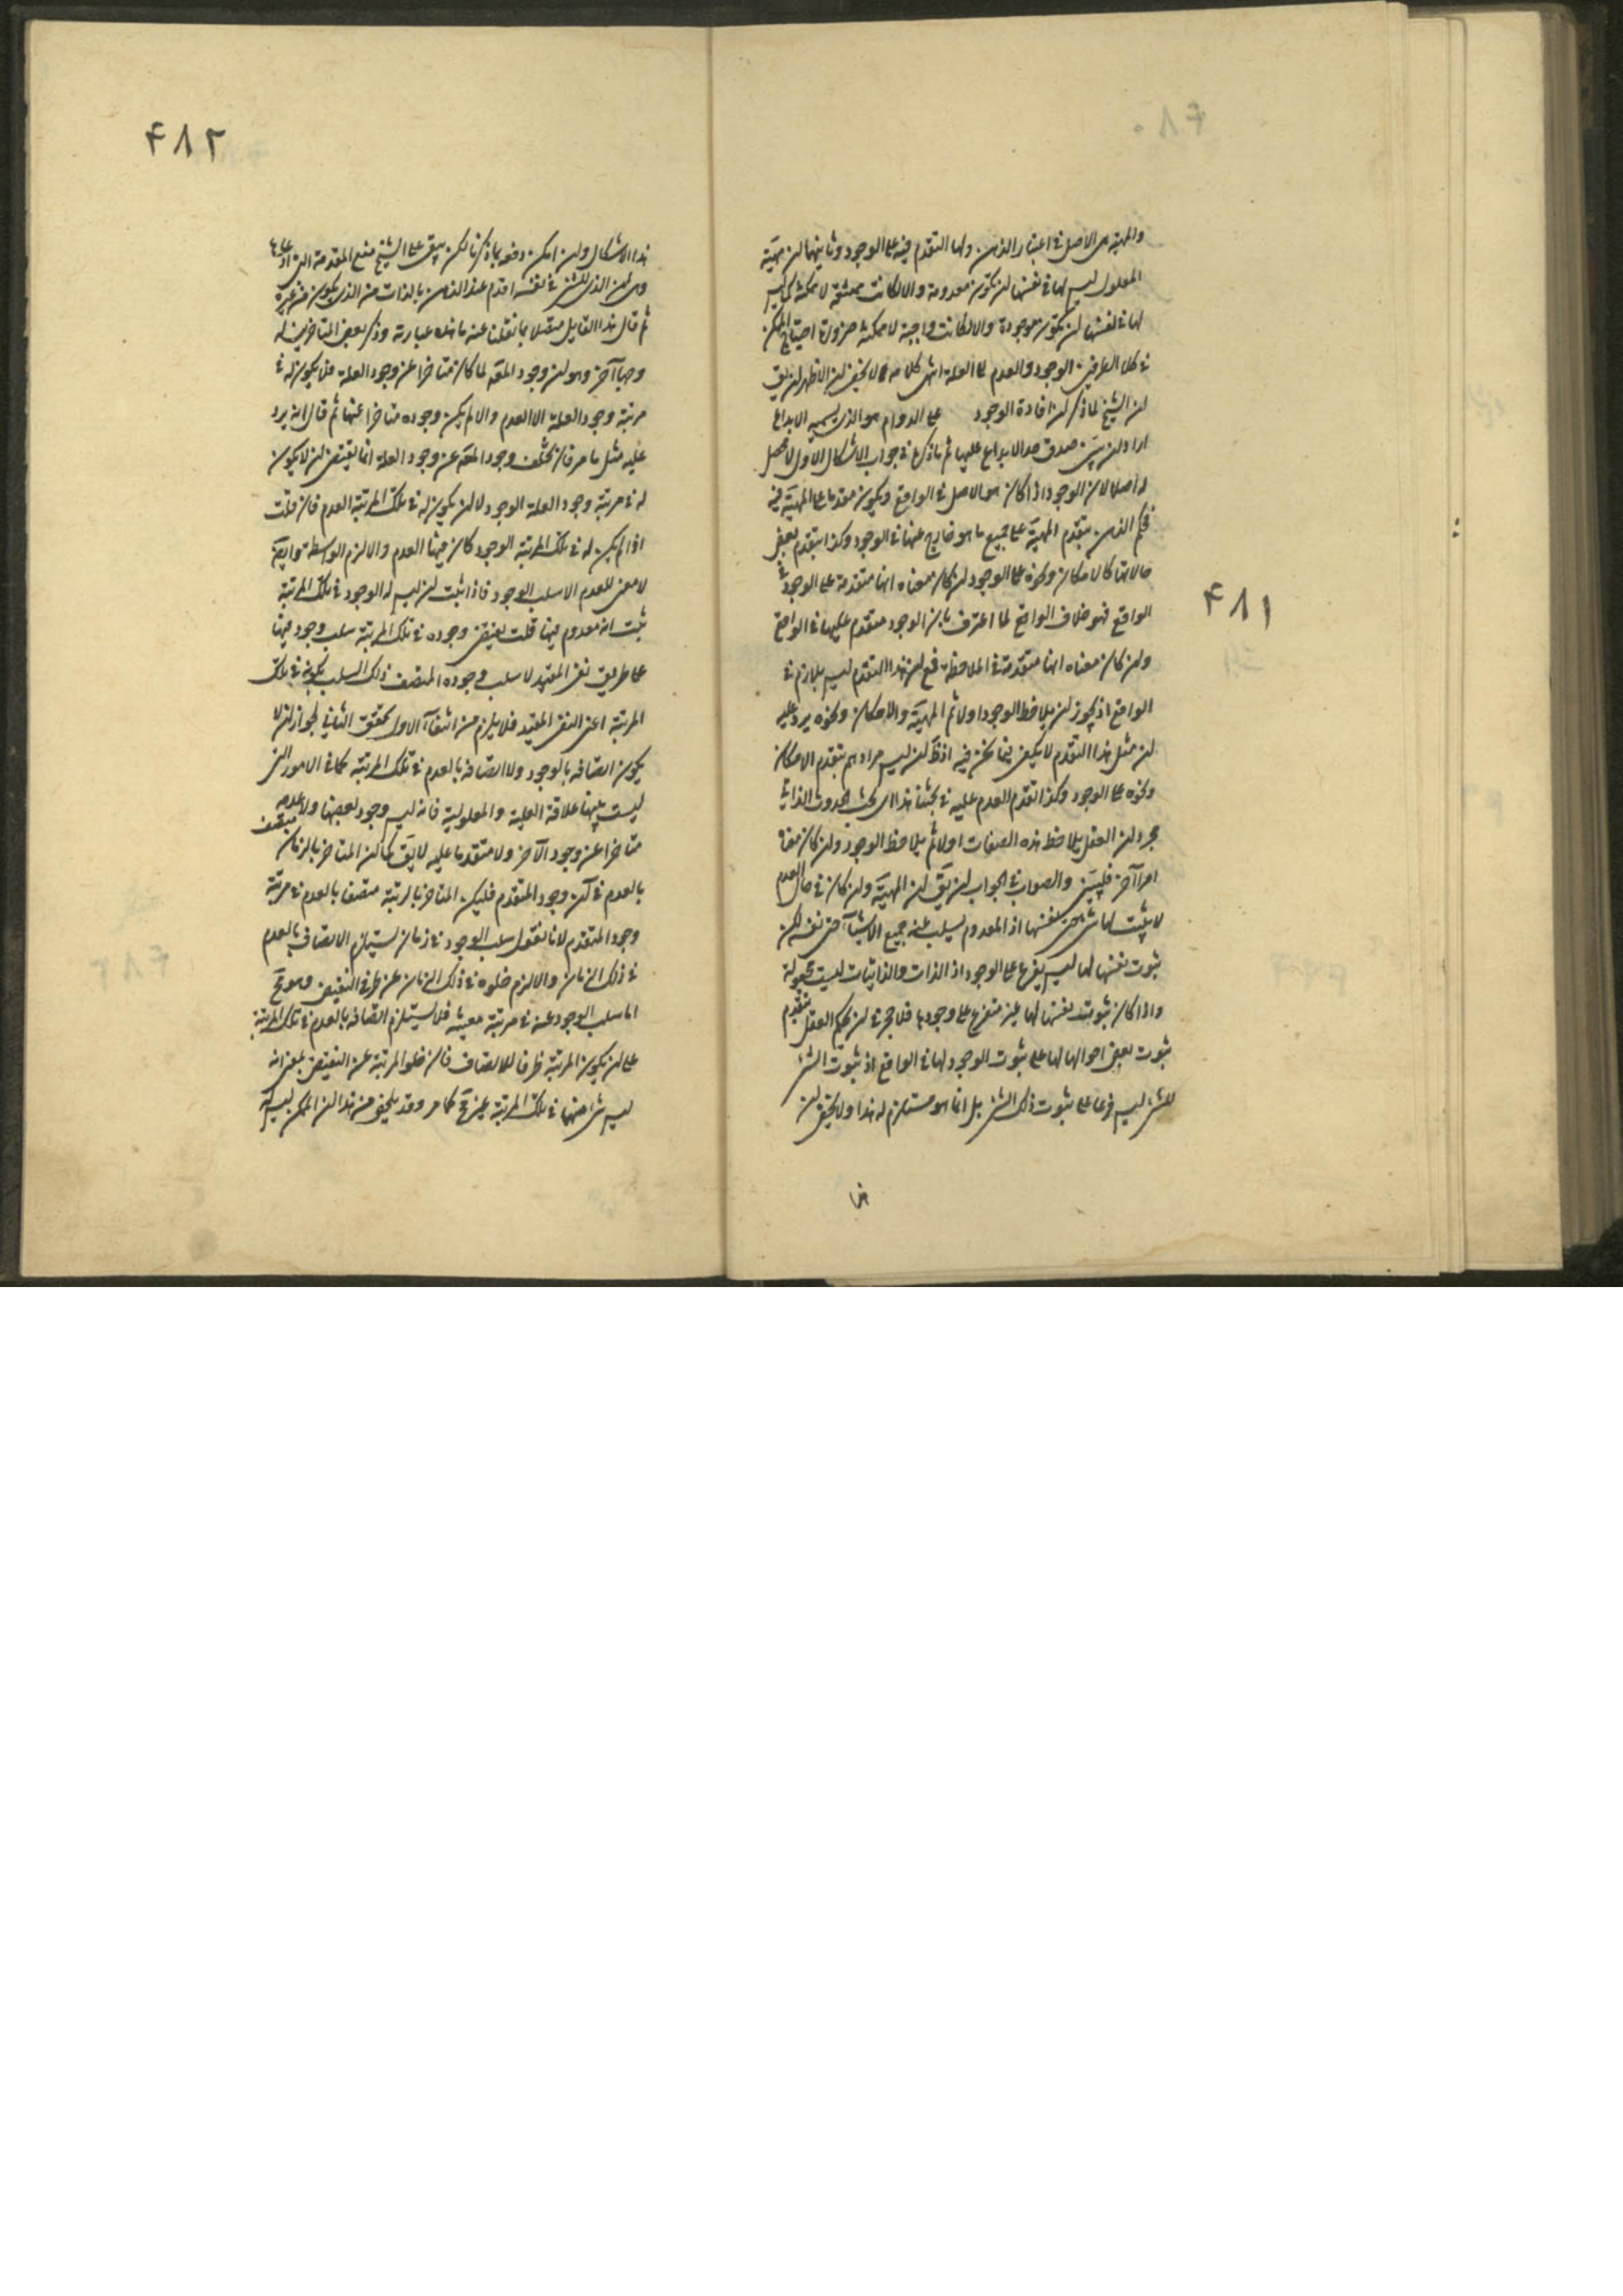 ۴۸۱
والمهية هي الاصل في اعتبار الذهن ولها التقدم فيه على الوجود وثانيهما ان مهية
المعلول ليس لها في نفسها ان تكون معدومة والا لكانت ممتنعة لا ممكنة كما ليس
لها في نفسها ان تكون موجودة والا لكانت واجبة لا ممكنة ضرورة احتياج الممكن
في كلا الطرفين الوجود والعدم الى العلة انتهى كلامه لا يخفى ان الاظهر ان يق
ان الشيخ لما ذكر ان افادة الوجود على الدوام هو الذي يسميه الابداع
اراد ان يبين صدق حد الابداع عليها ثم ما ذكره في جواب الاشكال الاول لا محصل
له اصلا لان الوجود اذا كان هو الاصل في الواقع ويكون مقدما على المهية فيه
فحكم الذهن بتقدم المهية على جميع ما هو خارج عنها في الوجود وكذا بتقدم بعض
حالاتها كالامكان ونحوه على الوجود ان كان معناه انها متقدمة على الوجود في
الواقع فهو خلاف الواقع لما اعترف بان الوجود متقدم عليها في الواقع
وان كان معناه انها متقدمة في الملاحظة فمع ان هذا التقدم ليس بلازم في
الواقع اذ يجوز ان يلاحظ الوجود اولا ثم المهية والامكان ونحوه يرد عليه
ان مثل هذا التقدم لا يكفي فيما نحن فيه اذ ظ ان ليس مرادهم بتقدم الامكان
ونحوه على الوجود وكذا تقدم العدم عليه في بحثنا هذا اي بحث الحدوث الذاتي
مجرد ان العقل يلاحظ هذه الصفات اولا ثم يلاحظ الوجود وان كان معناه
امرا آخر فليبين والصواب في الجواب ان يق ان المهية وان كان في حال العدم
لا يثبت لها شيء حتى نفسها اذ المعدوم يسلب عنه جميع الاشياء حتى نفسه لكن
ثبوت نفسها لها ليس بفرع على الوجود اذ الذات والذاتيات ليست مجعولة
واذا كان ثبوت نفسها لها غير متفرع على وجودها فلا حجر في ان يحكم العقل بتقدم
ثبوت بعض احوالها لها على ثبوت الوجود لها في الواقع اذ ثبوت الشيء
للشيء ليس فرعا على ثبوت ذلك الشيء بل انما هو مستلزم له هذا ولا يخفى ان
هذا
۴۸۲
هذا الاشكال وان امكن دفعه بما ذكرنا لكن يبقى على الشيخ منع المقدمة التي ادعاها
وهي ان الذي للشيء في نفسه اقدم عند الذهن بالذات من الذي يكون من غيره
ثم قال هذا القايل متصلا بما نقلنا عنه ما هذه عبارته وذكر بعض المتاخرين له
وجها آخر وهو ان وجود المعه لما كان متاخرا عن وجود العلة فلا يكون له في
مرتبة وجود العلة الا العدم والا لم يكن وجوده متاخرا عنها ثم قال انه يرد
عليه مثل ما مر فان تخلف وجود المعه عن وجود العلة انما يقتضي ان لا يكون
له في مرتبة وجود العلة الوجود لا ان يكون له في تلك المرتبة العدم فان قلت
اذا لم يكن له في تلك المرتبة الوجود كان فيها العدم والا لزم الواسطة وايضا
لا معنى للعدم الا سلب الوجود فاذا ثبت ان ليس له الوجود في تلك المرتبة
ثبت انه معدوم فيها قلت نقيض وجوده في تلك المرتبة سلب وجوده فيها
على طريق نفي المقيد لا سلب وجوده المتصف ذلك السلب بكونه في تلك
المرتبة اعني النفي المقيد فلا يلزم من انتفاء الاول تحقق الثاني لجواز ان لا
يكون اتصافه بالوجود ولا اتصافه بالعدم في تلك المرتبة كما في الامور التي
ليست بينها علاقة العلية والمعلولية فانه ليس وجود بعضها ولا عدمه
متاخرا عن وجود الآخر ولا متقدما عليه لا يق كما ان المتاخر بالزمان متصف
بالعدم في آن وجود المتقدم فليكن المتاخر بالرتبة متصفا بالعدم في مرتبة
وجود المتقدم لانا نقول سلب الوجود في زمان يستلزم الاتصاف بالعدم
في ذلك الزمان والا لزم خلوه في ذلك الزمان عن طرفي النقيض وهو مح
اما سلب الوجود عنه في مرتبة معينة فلا يستلزم اتصافه بالعدم في تلك المرتبة
على ان يكون المرتبة ظرفا للاتصاف فان خلو المرتبة عن النقيض بمعنى انه
ليس شيء منهما في تلك المرتبة غير مح كما مر وقد تلخص من هذا ان الممكن ليس له